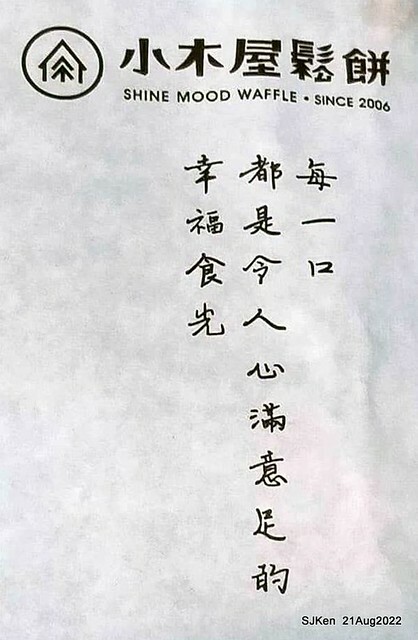 小木屋鬆餅
SHINE MOOD WAFFLE • SINCE 2006
每一口
都是令人心滿意足的
幸福食光
SJKen 21Aug2022